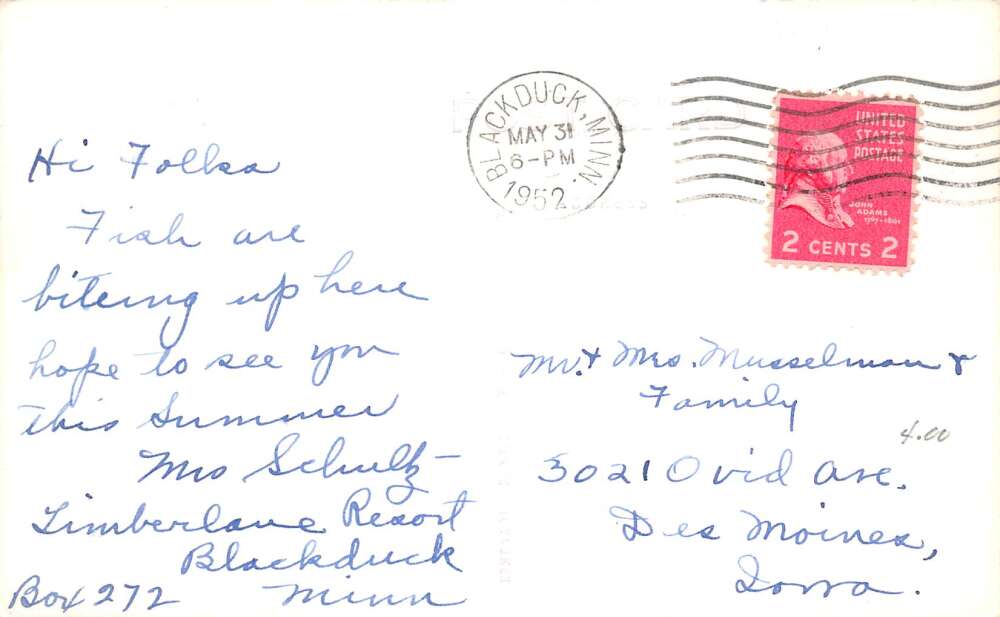 Hi Folks
Fish are
biteing up here
hope to see you
this Summer
Mrs Schultz
Timberlane Resort
Blackduck
Box 272 Minn
BLACKDUCK, MINN.
MAY 31
6-PM
1952
UNITED
STATES
POSTAGE
JOHN
ADAMS
1797-1801
2 CENTS 2
Mr. & Mrs. Musselman &
Family
4.00
3021 Ovid Ave.
Des Moines,
Iowa.